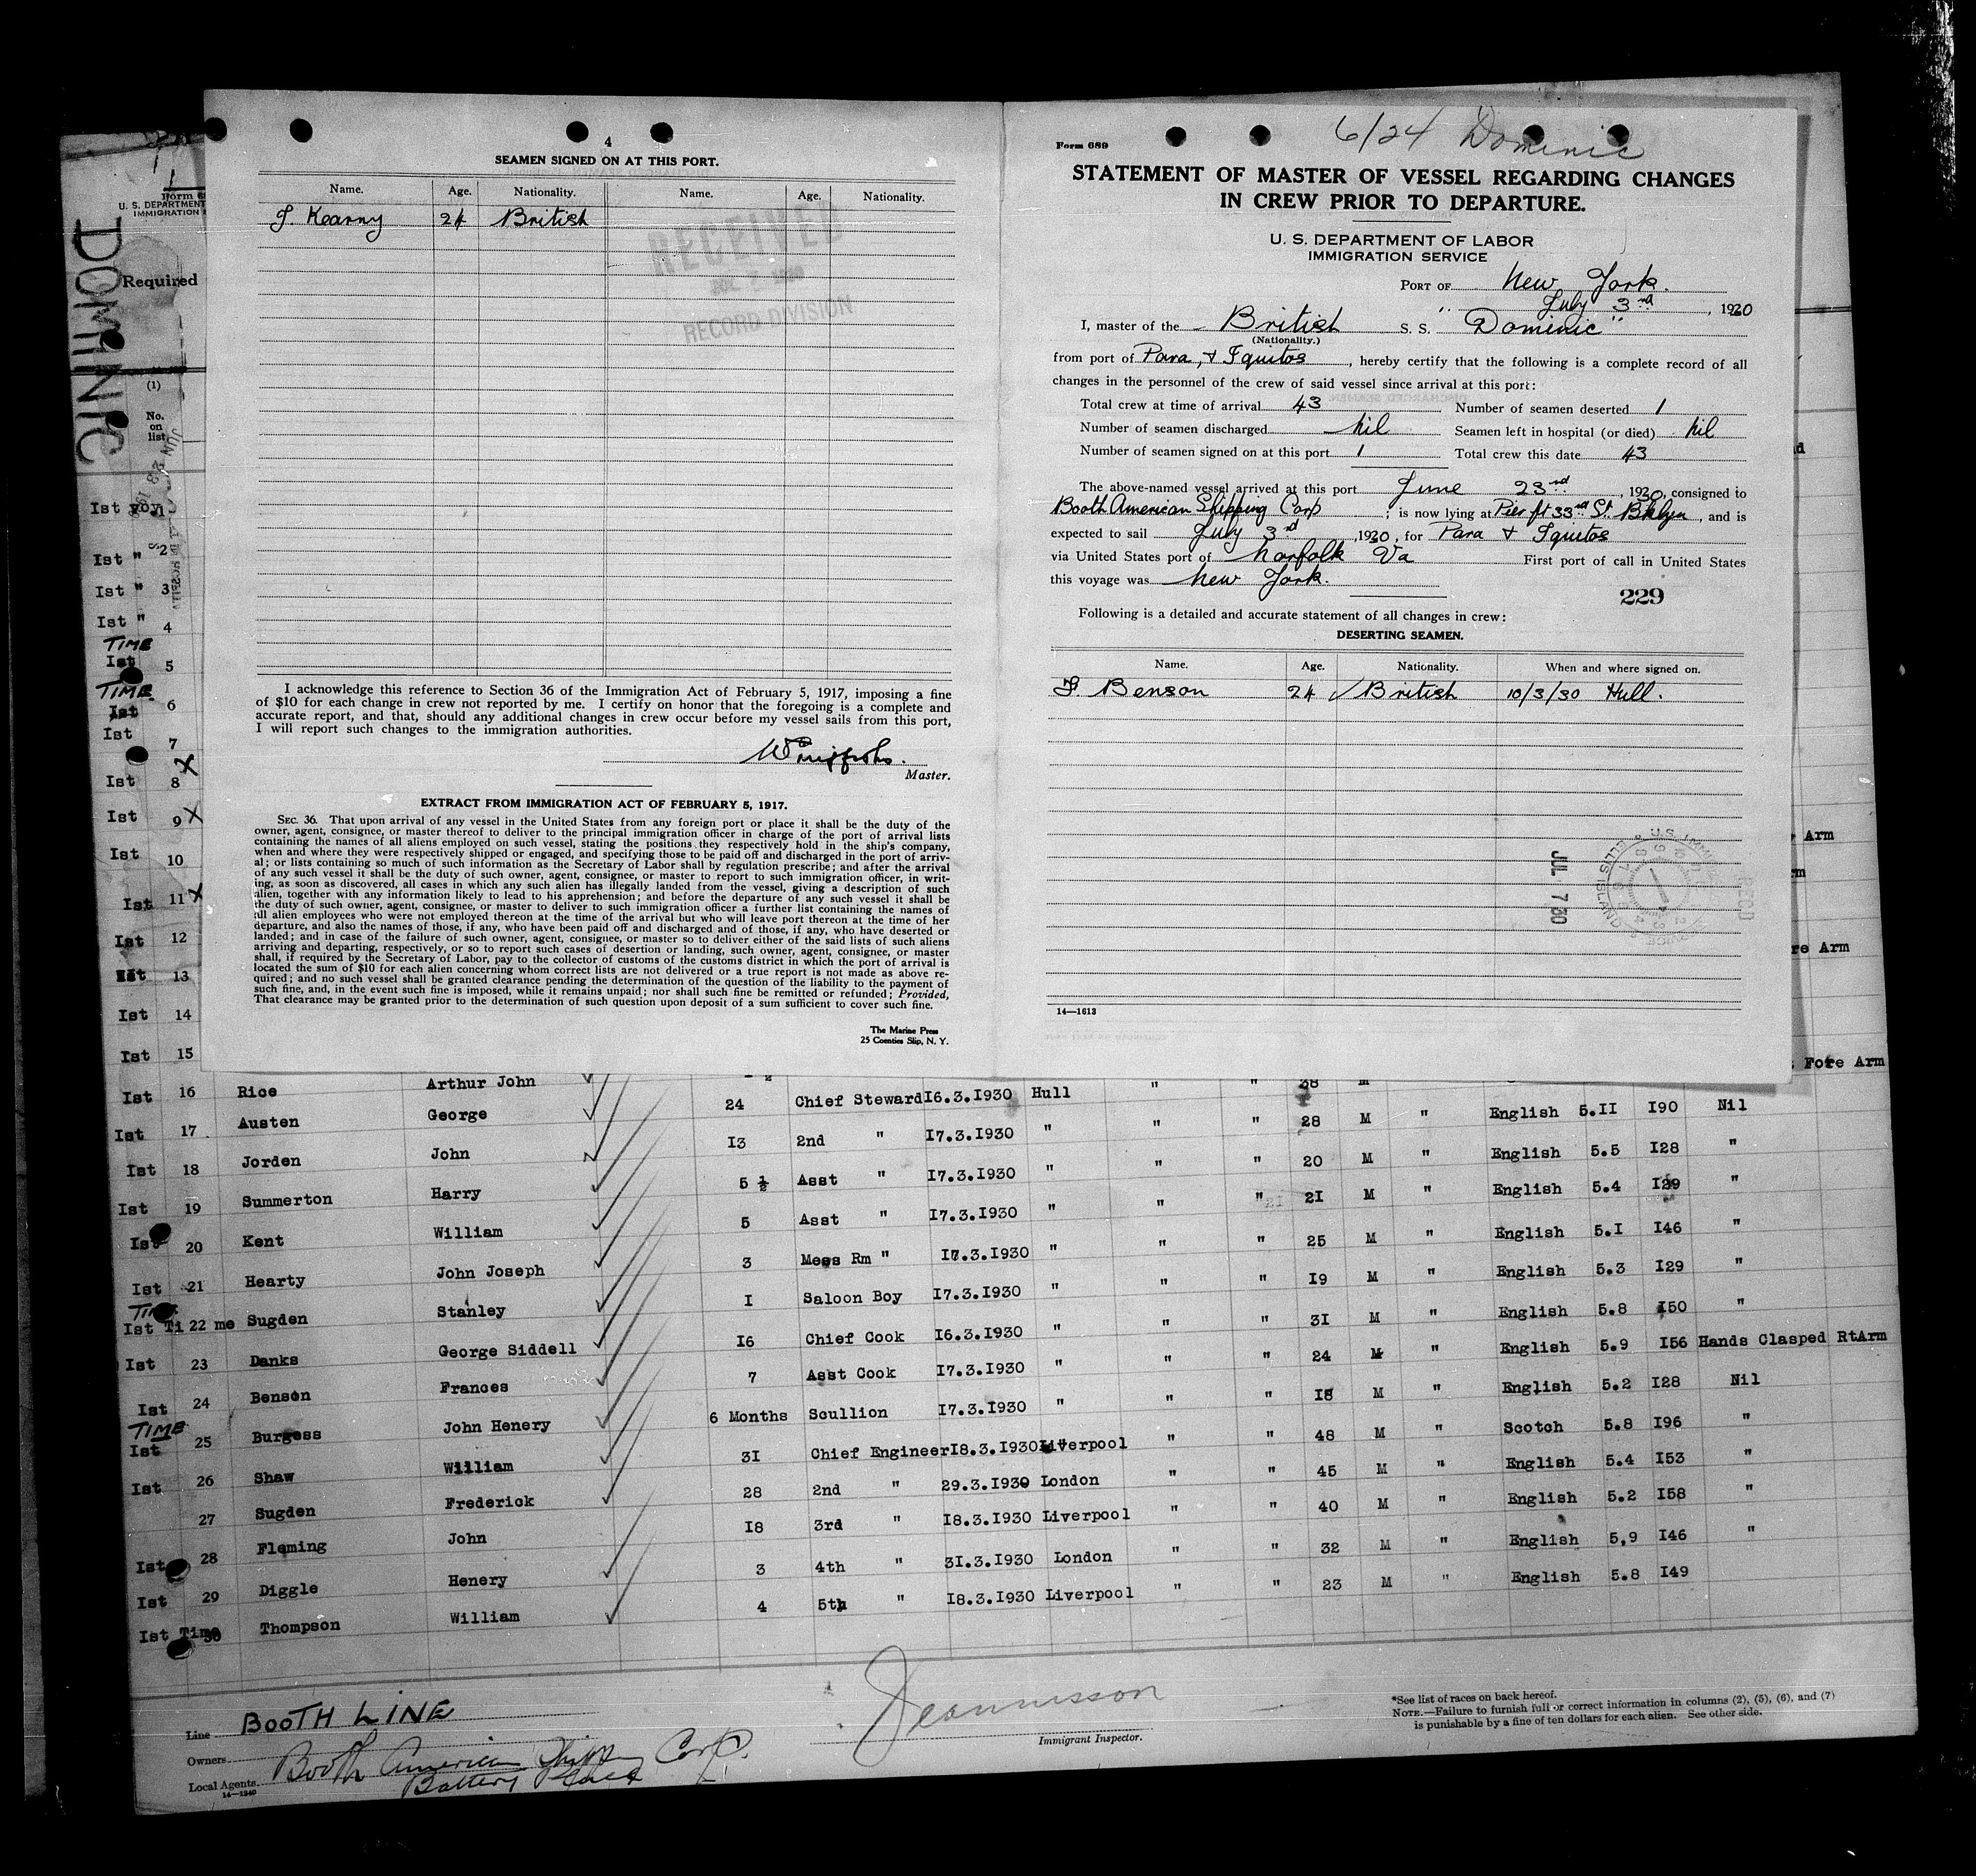 4
SEAMEN SIGNED ON AT THIS PORT.
Name. Age. Nationality. Name. Age. Nationality.
J. Kearny 24 British
RECEIVED
RECORD DIVISION
I acknowledge this reference to Section 36 of the Immigration Act of February 5, 1917, imposing a fine
of $10 for each change in crew not reported by me. I certify on honor that the foregoing is a complete and
accurate report, and that, should any additional changes in crew occur before my vessel sails from this port,
I will report such changes to the immigration authorities.
Master.
EXTRACT FROM IMMIGRATION ACT OF FEBRUARY 5, 1917.
SEC. 36. That upon arrival of any vessel in the United States from any foreign port or place it shall be the duty of the
owner, agent, consignee, or master thereof to deliver to the principal immigration officer in charge of the port of arrival lists
containing the names of all aliens employed on such vessel, stating the positions they respectively hold in the ship's company,
when and where they were respectively shipped or engaged, and specifying those to be paid off and discharged in the port of arriv-
al; or lists containing so much of such information as the Secretary of Labor shall by regulation prescribe; and after the arrival
of any such vessel it shall be the duty of such owner, agent, consignee, or master to report to such immigration officer, in writ-
ing, as soon as discovered, all cases in which any such alien has illegally landed from the vessel, giving a description of such
alien, together with any information likely to lead to his apprehension; and before the departure of any such vessel it shall be
the duty of such owner, agent, consignee, or master to deliver to such immigration officer a further list containing the names of
all alien employees who were not employed thereon at the time of the arrival but who will leave port thereon at the time of her
departure, and also the names of those, if any, who have been paid off and discharged and of those, if any, who have deserted or
landed; and in case of the failure of such owner, agent, consignee, or master so to deliver either of the said lists of such aliens
arriving and departing, respectively, or so to report such cases of desertion or landing, such owner, agent, consignee, or master
shall, if required by the Secretary of Labor, pay to the collector of customs of the customs district in which the port of arrival is
located the sum of $10 for each alien concerning whom correct lists are not delivered or a true report is not made as above re-
quired; and no such vessel shall be granted clearance pending the determination of the question of the liability to the payment of
such fine, and, in the event such fine is imposed, while it remains unpaid; nor shall such fine be remitted or refunded; Provided,
That clearance may be granted prior to the determination of such question upon deposit of a sum sufficient to cover such fine.
The Marine Press
25 Coenties Slip, N. Y.
6/24 Dominic
Form 689
STATEMENT OF MASTER OF VESSEL REGARDING CHANGES
IN CREW PRIOR TO DEPARTURE.
U. S. DEPARTMENT OF LABOR
IMMIGRATION SERVICE
PORT OF New York.
July 3rd, 1930
I, master of the British S. S. "Dominic"
(Nationality.)
from port of Para, + Iquitos, hereby certify that the following is a complete record of all
changes in the personnel of the crew of said vessel since arrival at this port:
Total crew at time of arrival 43 Number of seamen deserted 1
Number of seamen discharged nil Seamen left in hospital (or died) nil
Number of seamen signed on at this port 1 Total crew this date 43
The above-named vessel arrived at this port June 23rd, 1930, consigned to
Booth American Shipping Corp; is now lying at Pier ft 33rd St. Bklyn, and is
expected to sail July 3rd, 1930, for Para + Iquitos
via United States port of Norfolk Va First port of call in United States
this voyage was New York.
229
Following is a detailed and accurate statement of all changes in crew:
DESERTING SEAMEN.
Name. Age. Nationality. When and where signed on.
F. Benson 24 British 10/3/30 Hull.
JUL 7 30
14—1613
DOMINIC
U. S. DEPARTMENT
IMMIGRATION
Required
(1)
No.
on
list
Ist voy 1
Ist " 2
Ist " 3
Ist " 4
TIME
Ist 5
TIME
Ist 6
Ist 7
Ist 8 X
Ist 9 X
Ist 10
Ist 11 X
Ist 12
Ist 13
Ist 14
Ist 15
Arm
re Arm
Fore Arm
Ist 16 Rice Arthur John 38 M
Ist 17 Austen George 24 Chief Steward I6.3.I930 Hull " " 28 M " English 5.II I90 Nil
Ist 18 Jorden John I3 2nd " I7.3.I930 " " " 20 M " English 5.5 I28 "
Ist 19 Summerton Harry 5 ½ Asst " I7.3.I930 " " " 2I M " English 5.4 I29 "
Ist 20 Kent William 5 Asst " I7.3.I930 " " " 25 M " English 5.I I46 "
Ist 21 Hearty John Joseph 3 Mess Rm " I7.3.I930 " " " I9 M " English 5.3 I29 "
TIME
Ist Ti 22 me Sugden Stanley I Saloon Boy I7.3.I930 " " " 3I M " English 5.8 I50 "
Ist 23 Danks George Siddell I6 Chief Cook I6.3.I930 " " " 24 M " English 5.9 I56 Hands Clasped RtArm
Ist 24 Benson Frances 7 Asst Cook I7.3.I930 " " " I8 M " English 5.2 I28 Nil
TIME
Ist 25 Burgess John Henery 6 Months Scullion I7.3.I930 " " " 48 M " Scotch 5.8 I96 "
Ist 26 Shaw William 3I Chief Engineer I8.3.I930 Liverpool " " 45 M " English 5.4 I53 "
27 Sugden Frederick 28 2nd " 29.3.I930 London " " 40 M " English 5.2 I58 "
Ist 28 Fleming John I8 3rd " I8.3.I930 Liverpool " " 32 M " English 5.9 I46 "
Ist 29 Diggle Henery 3 4th " 3I.3.I930 London " " 23 M " English 5.8 I49
Ist Time 30 Thompson William 4 5th " I8.3.I930 Liverpool
Line BOOTH LINE
Owners
Local Agents Booth American Shipping Corp.
Battery Place
14—1240
Immigrant Inspector.
*See list of races on back hereof.
NOTE.—Failure to furnish full or correct information in columns (2), (5), (6), and (7)
is punishable by a fine of ten dollars for each alien. See other side.